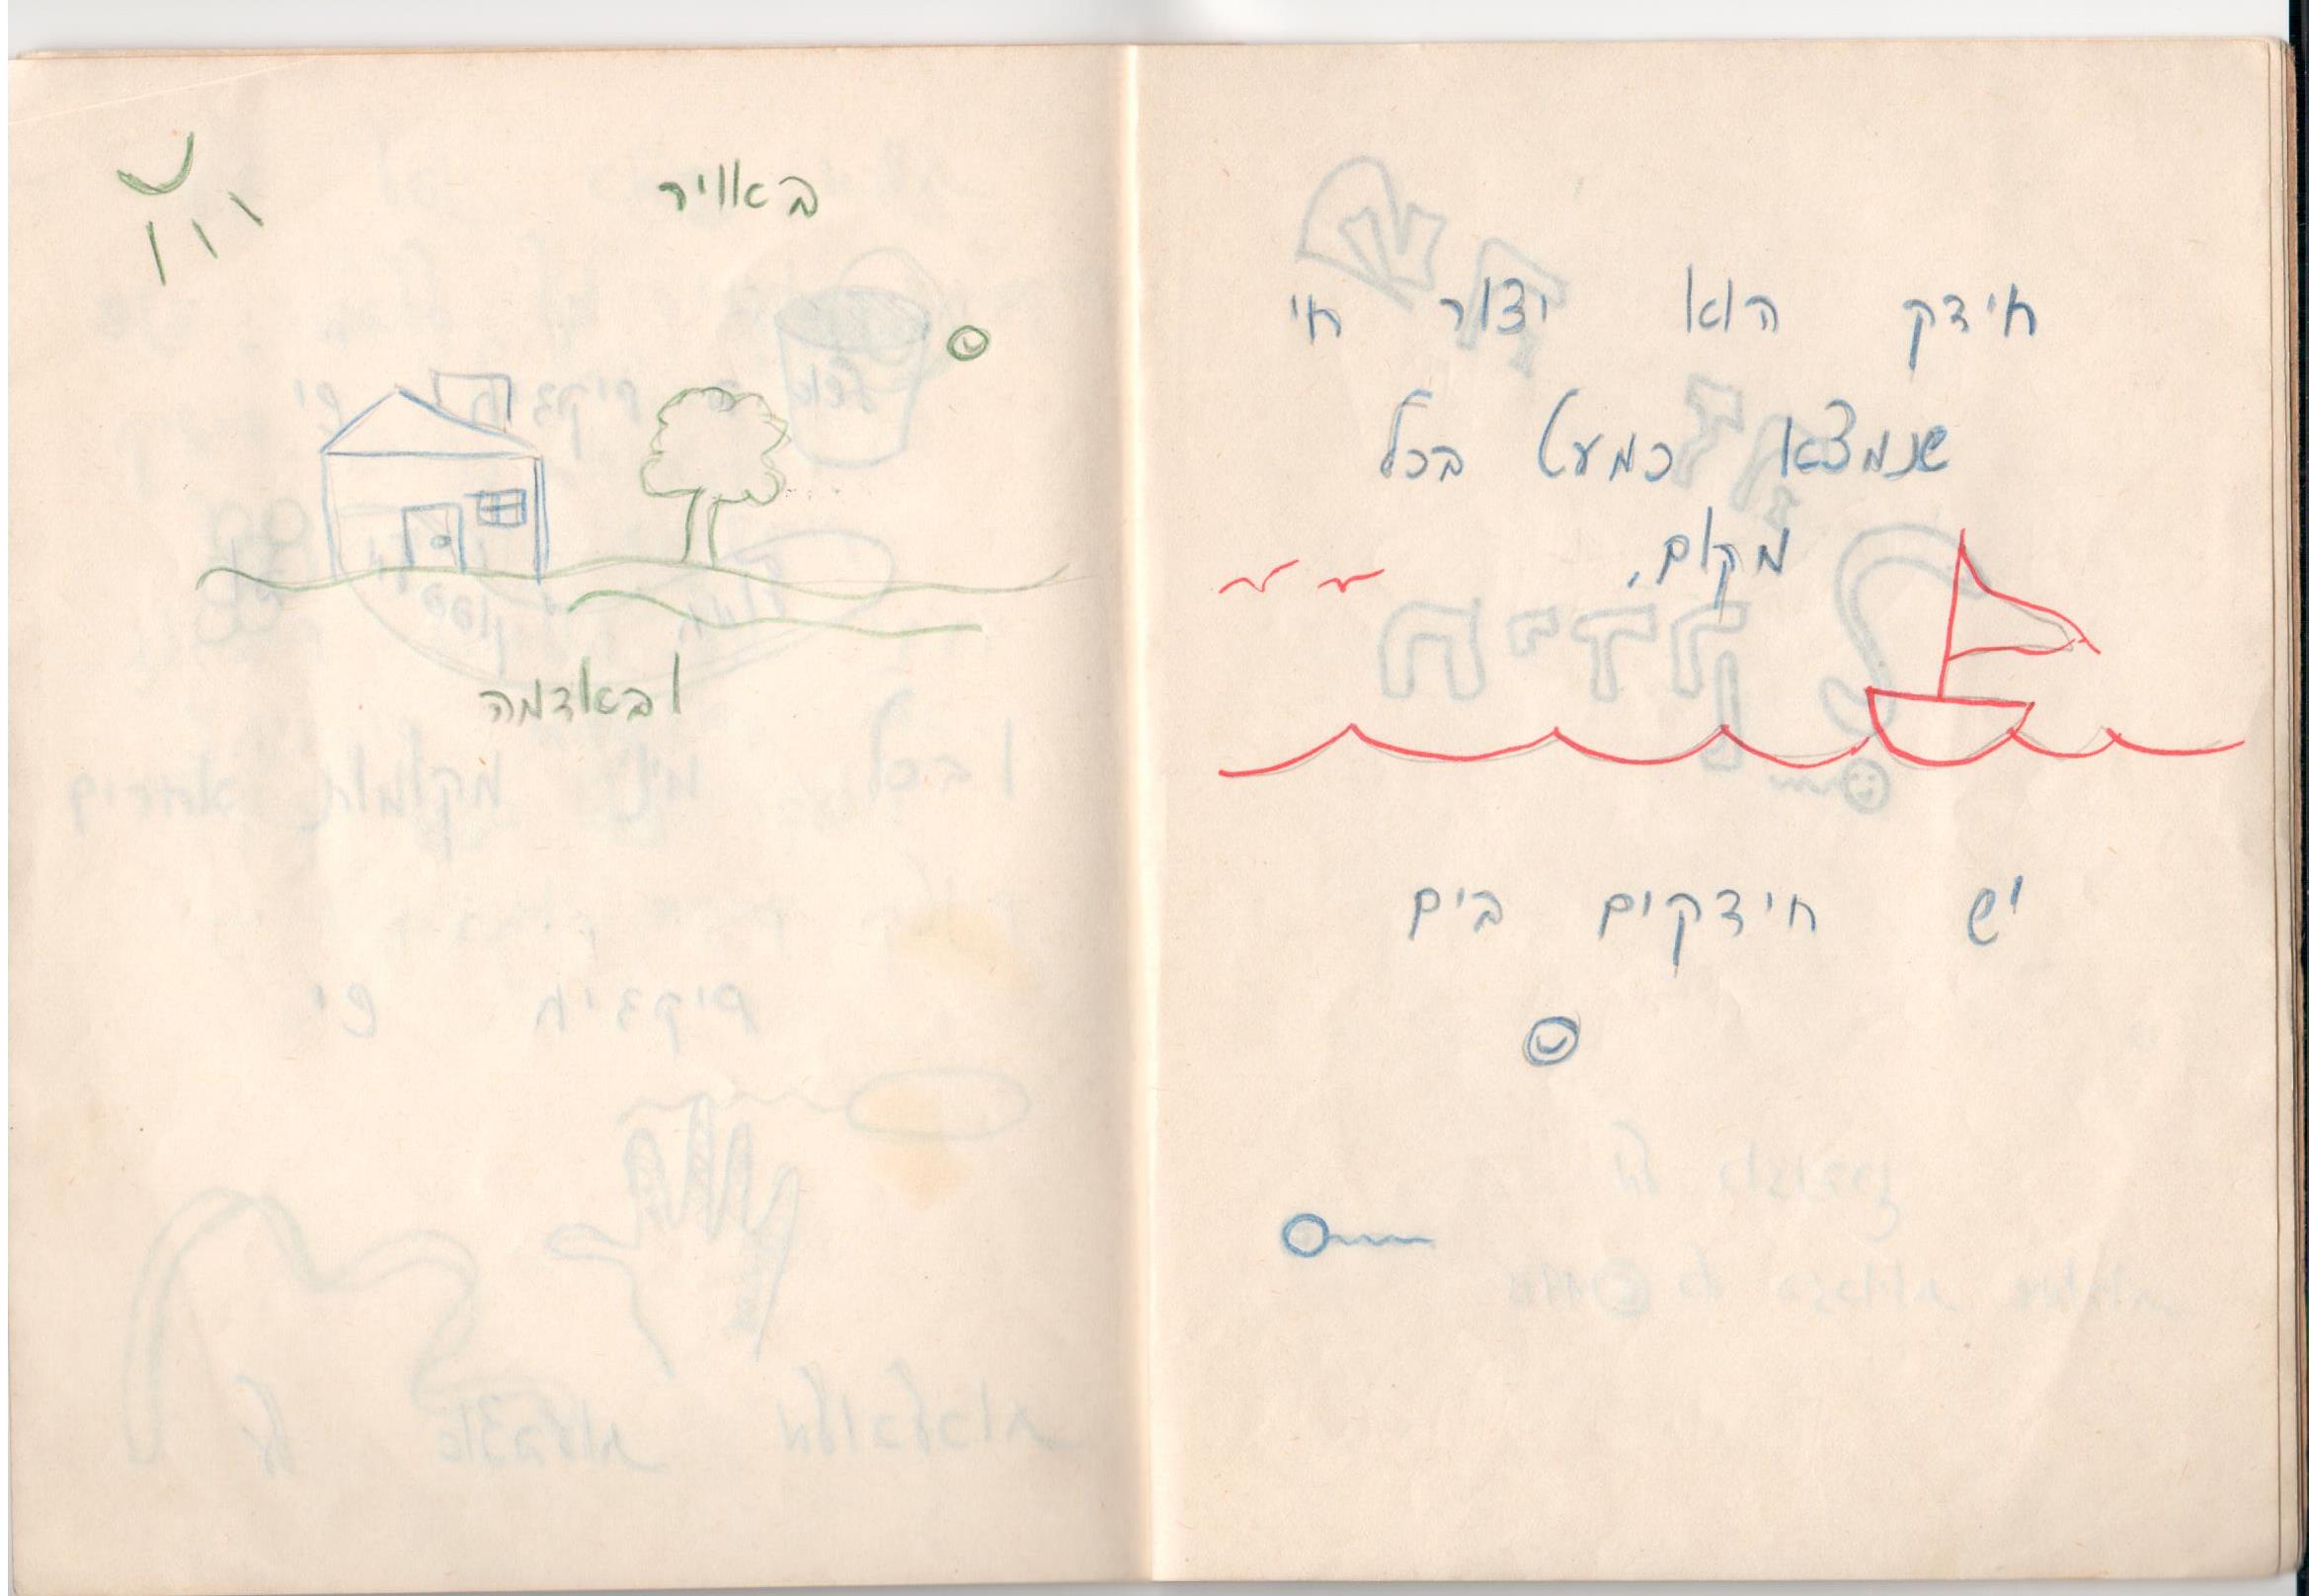 חידק הוא יצור חי
שנמצא כמעט בכל
מקום.
יש חידקים בים
באוויר
ובאדמה